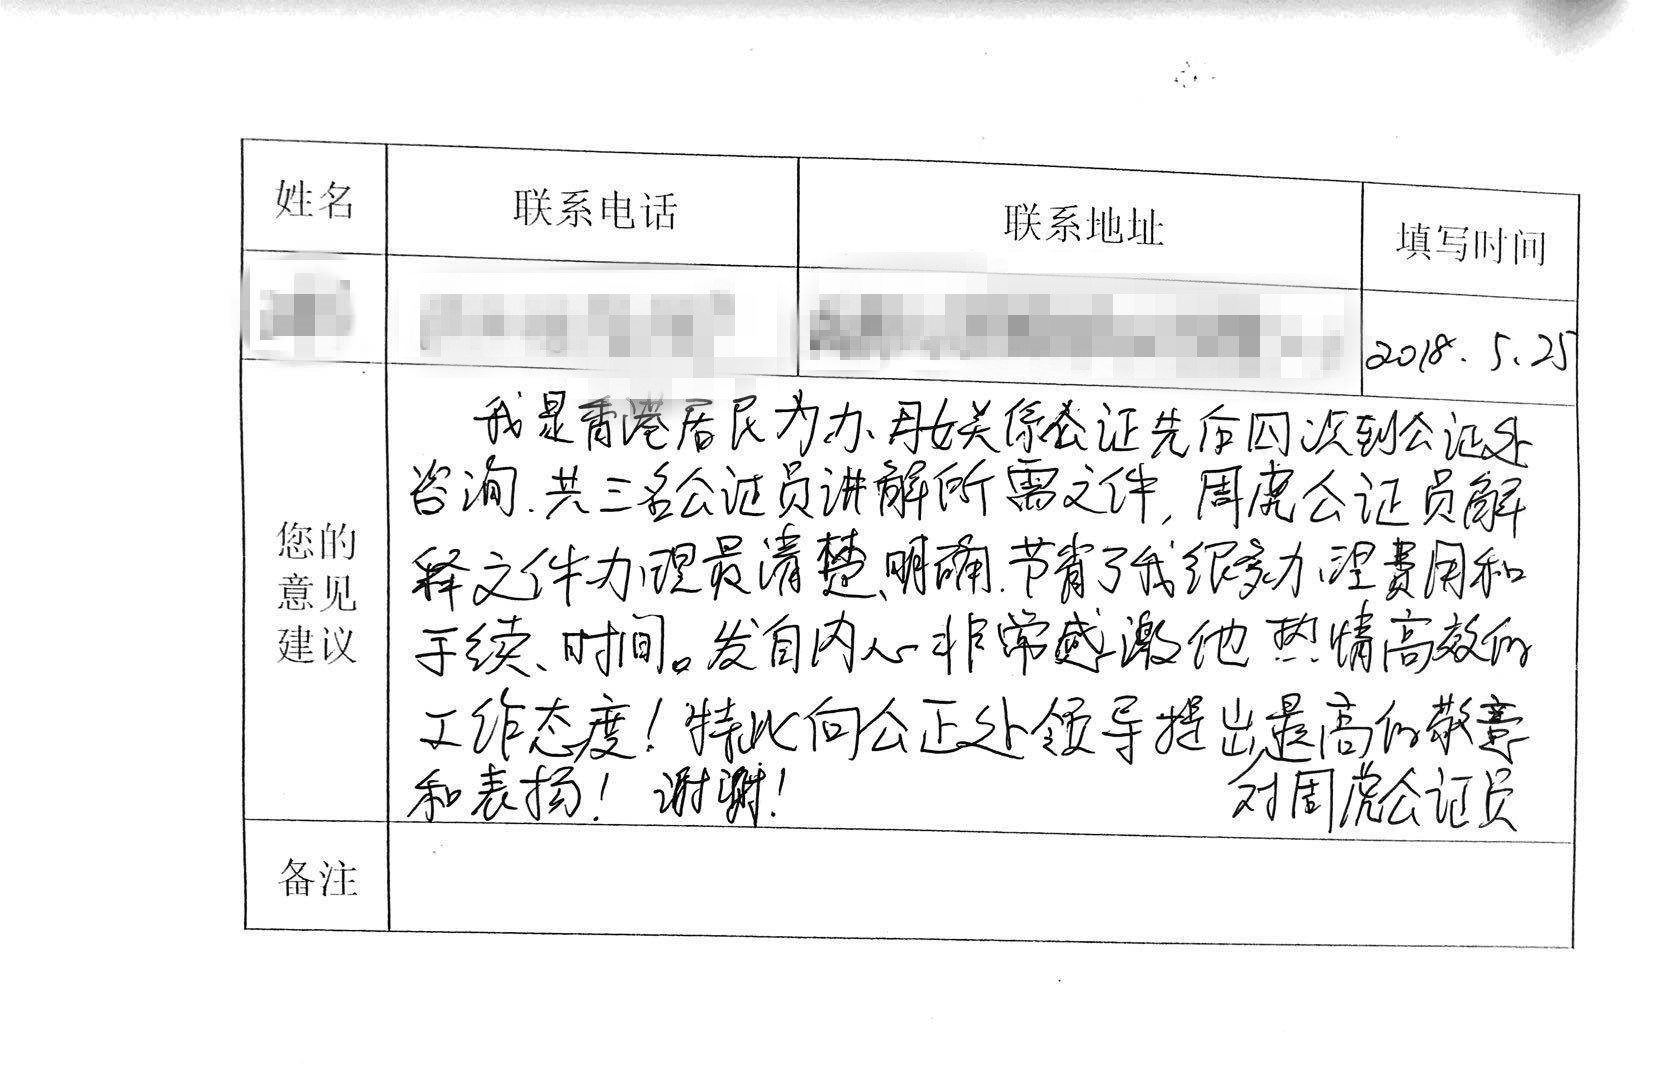 姓名 联系电话 联系地址 填写时间
2018.5.25
我是香港居民为办母女关系公证先后四次到公证处
咨询.共三名公证员讲解所需文件,周虎公证员解
您的
意见
建议
释文件办理最清楚、明确.节省了我很多办理费用和
手续、时间。发自内心非常感激他热情高效的
工作态度!特此向公正处领导提出最高的敬意
和表扬!谢谢! 对周虎公证员
备注